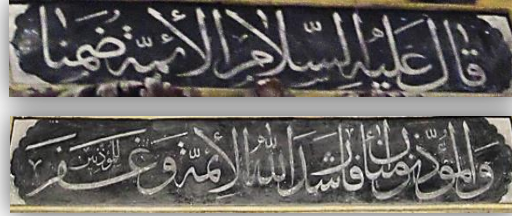 قال عليه السلام الأئمة ضمنا
والمؤذنون أمنا فأرشد الله الأئمة وغفر للمؤذنين